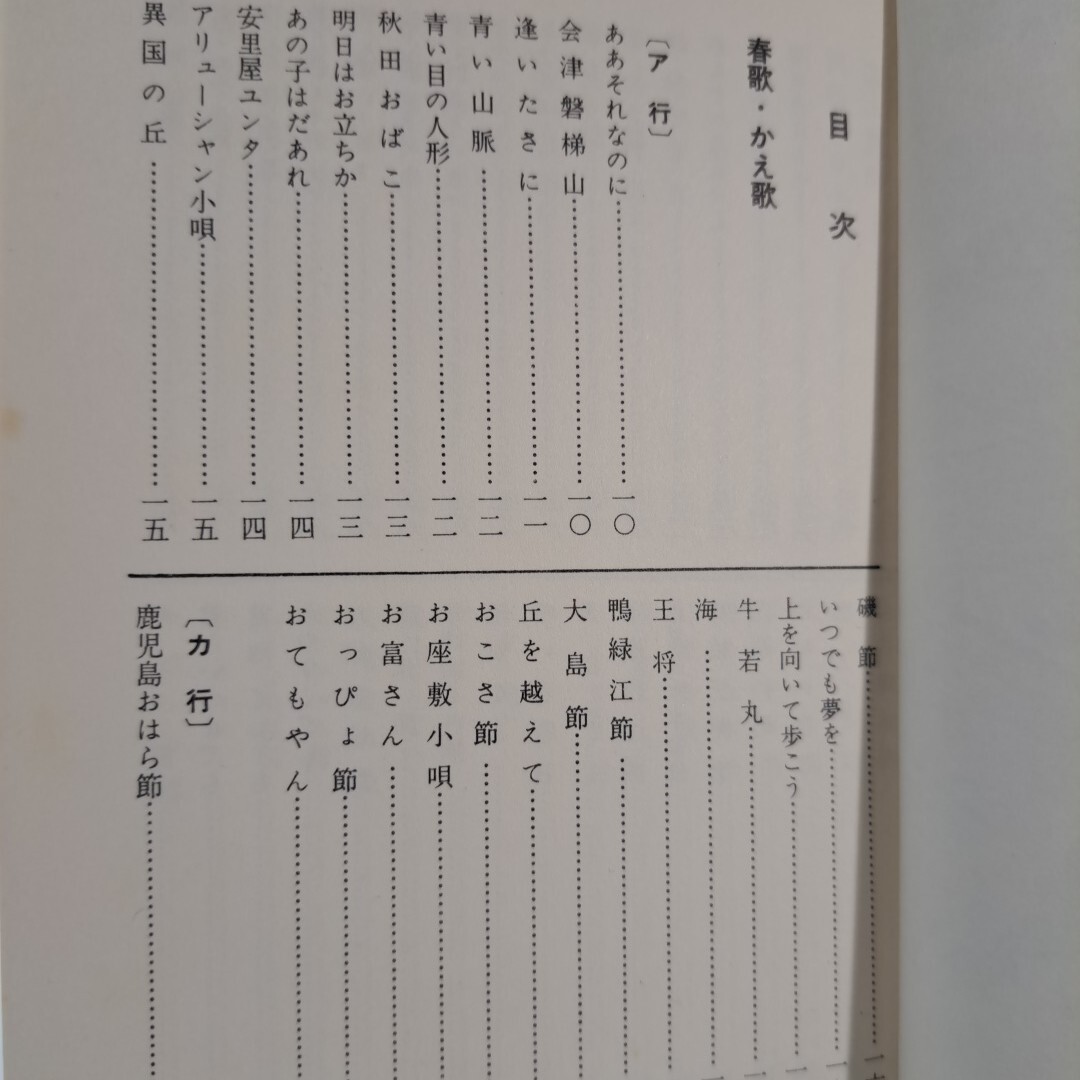 目次
春歌・かえ歌
〔ア行〕
ああそれなのに……一〇
会津磐梯山……一〇
逢いたさに……一一
青い山脈……一二
青い目の人形……一二
秋田おばこ……一三
明日はお立ちか……一三
あの子はだあれ……一四
安里屋ユンタ……一四
アリューシャン小唄……一五
異国の丘……一五
磯節……一
いつでも夢を……一
上を向いて歩こう……一
牛若丸……一
海……一
王将……
鴨緑江節……
大島節……
丘を越えて……
おこさ節……
お座敷小唄……
お富さん……
おっぴょ節……
おてもやん……
〔カ行〕
鹿児島おはら節……